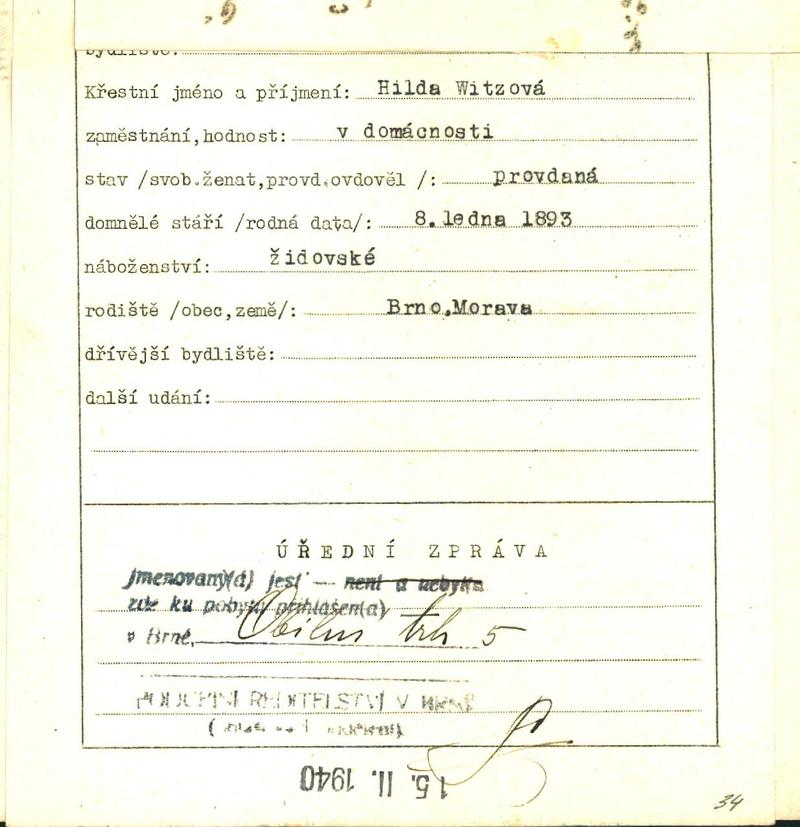 bydliště:
Křestní jméno a příjmení: Hilda Witzová
zaměstnání,hodnost: v domácnosti
stav /svob.ženat,provd,ovdověl /: provdaná
domnělé stáří /rodná data/: 8.ledna 1893
náboženství: židovské
rodiště /obec,země/: Brno,Morava
dřívější bydliště:
další udání:
ÚŘEDNÍ ZPRÁVA
Jmenovaný(á) jest — není a nebyl(a)
zde ku pobytu přihlášen(a)
v Brně, Obilní trh 5
POLICEJNÍ ŘEDITELSTVÍ V BRNĚ
15. II. 1940
34